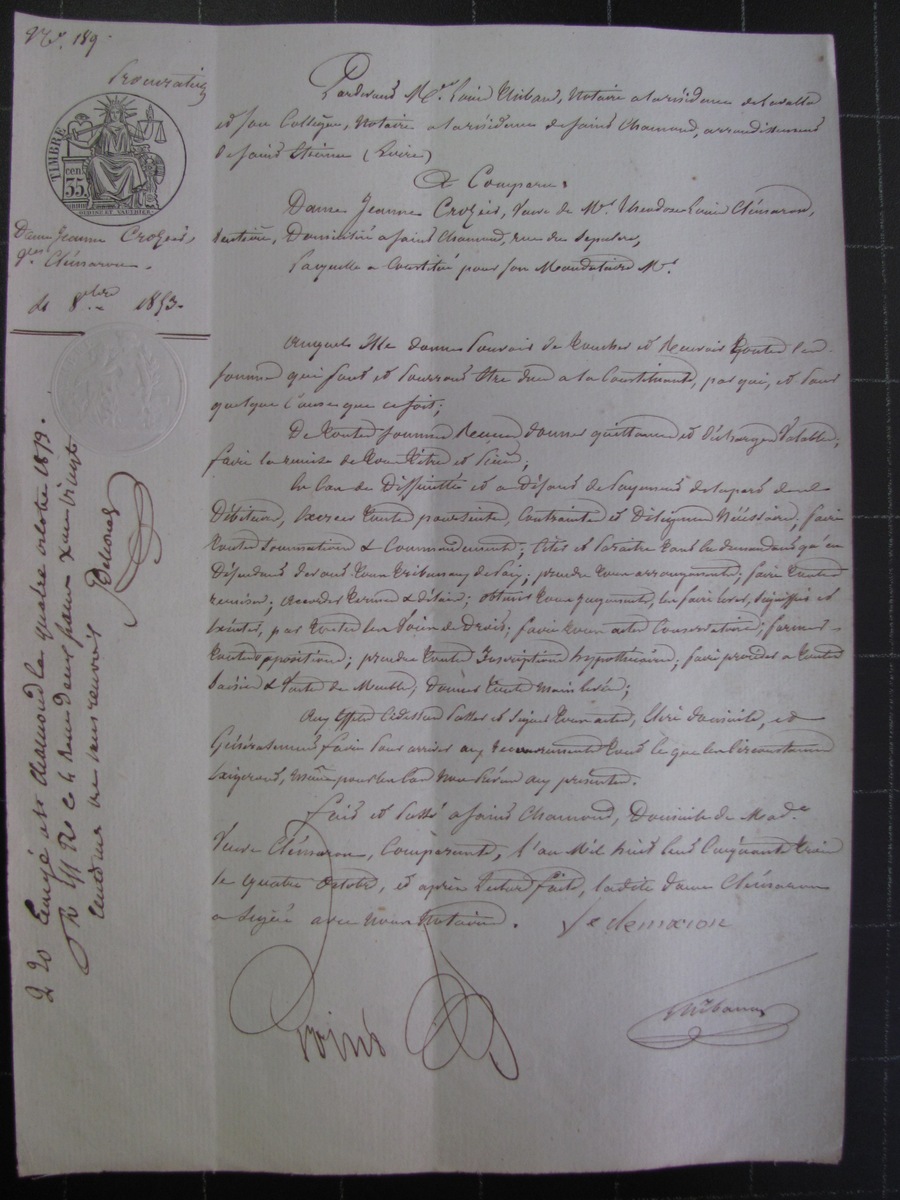 N.º 189.
Procuration
TIMBRE
35 cen
Dame Jeanne Crozier,
Vve Clémaron.
du 4 8bre 1853.
Pardevant Me Louis Thibaud, Notaire à la résidence de Lavalla
et son Collègue, Notaire à la résidence de Saint Chamond, arrondissement
de Saint Etienne (Loire)
A Comparu:
Dame Jeanne Crozier, Veuve de Mr Théodore Louis Clémaron,
rentière, Domiciliée à Saint Chamond, rue du Sépulcre,
Laquelle a Constitué pour son Mandataire Mr
Auquel Elle donne Pouvoir de Toucher et Recevoir Toutes les
sommes qui sont et pourront être dues à la Constituante, par qui, et pour
quelque Cause que ce soit;
De Toutes sommes Reçues donner quittances et Décharges Valables,
faire la remise de Tous Titres et pièces;
En Cas de Difficultés et à Défaut de Payement de la part de
Débiteurs, Exercer Toutes poursuites, Contraintes et Diligences Nécessaires, faire
Toutes Sommations & Commandements; Citer et Paraître tant en demandant qu'en
Défendant devant tous tribunaux de Paix; prendre tous arrangements; faire Toutes
remises; accorder termes & délais; obtenir tous jugements, les faire lever, signifier et
Exécuter, par toutes les Voies de Droit; faire tous actes Conservatoires; former
Toutes oppositions; prendre Toutes Inscriptions hypothécaires; faire procéder à Toutes
Saisies & Ventes de Meubles; donner Toutes Mainlevées;
Aux Effets Cidessus Passer et Signer tous actes, Elire domicile, et
Généralement faire Pour arriver aux recouvrements tout ce que les Circonstances
Exigeront, même pour les Cas Non prévus aux présentes.
Fait et Passé à Saint Chamond, Domicile de Made
Veuve Clémaron, Comparante, l'an Mil huit Cent Cinquante Trois
le Quatre Octobre, et après Lecture faite, ladite dame Clémaron
a Signé avec Nous Notaires.
Thibaud
2 20 Enregé à St Chamond le quatre octobre 1853.
deux francs
vingt
centimes